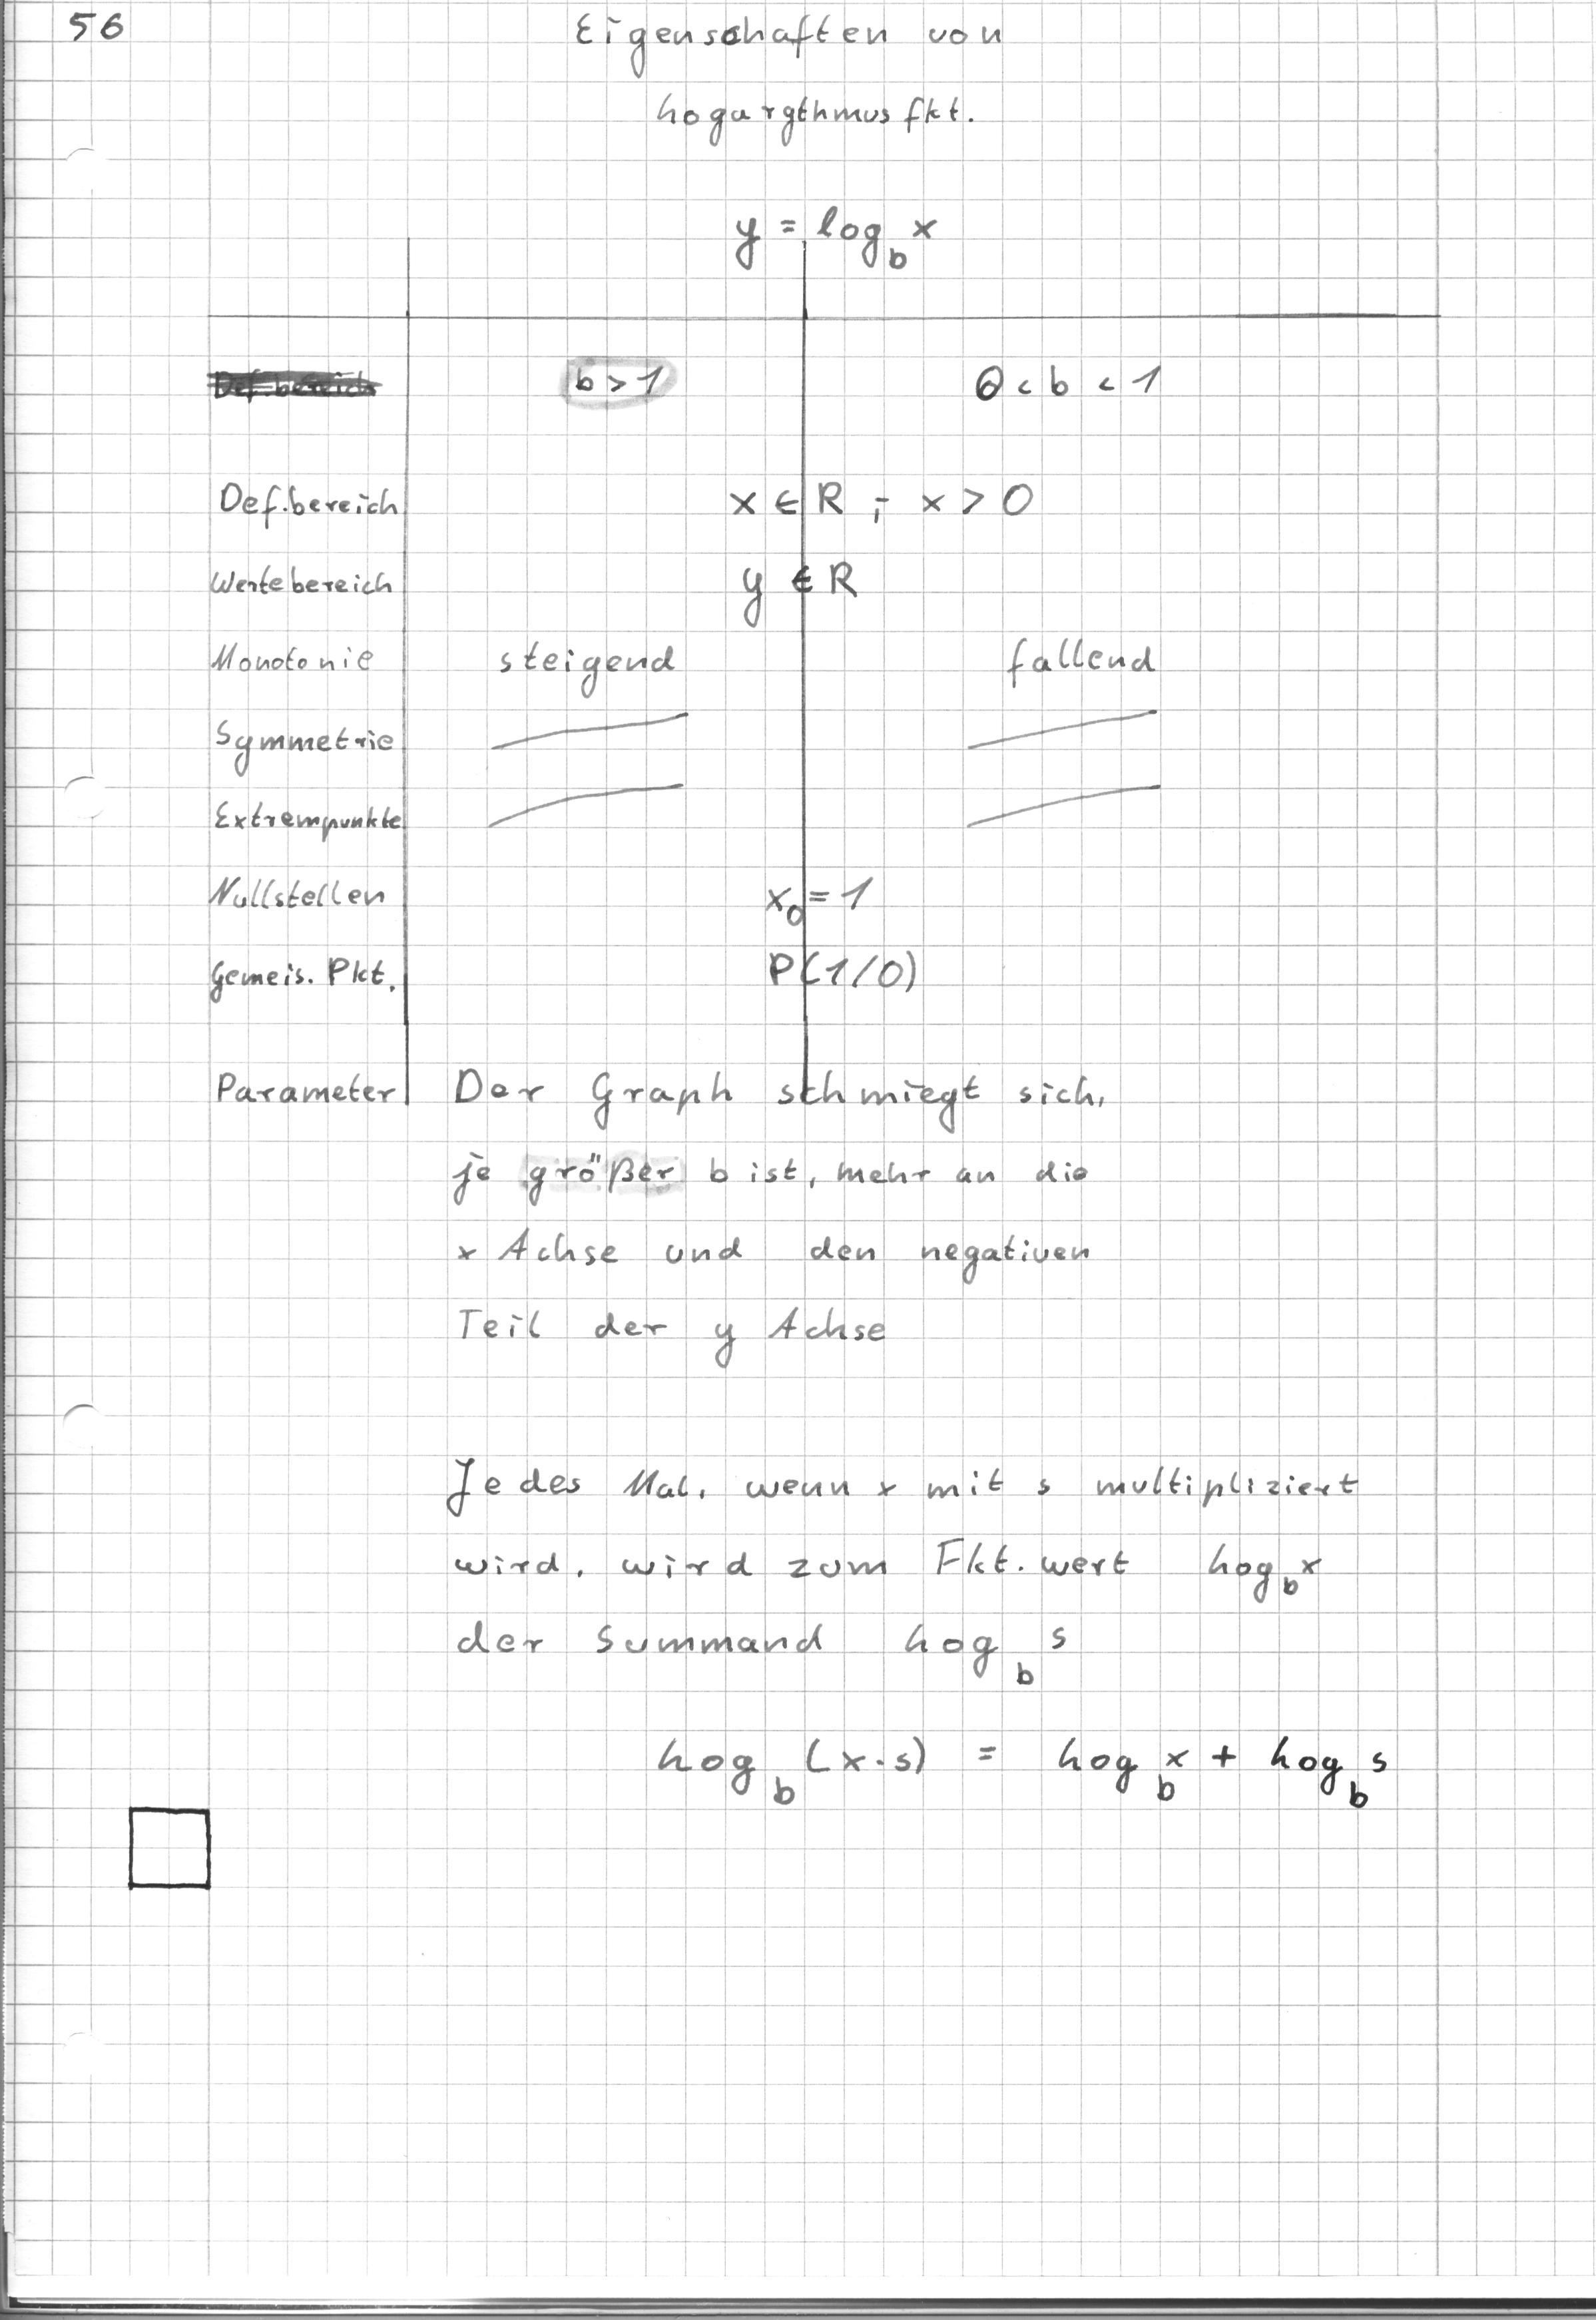 56
Eigenschaften von
Logargthmusfkt.
y = log_b x
Def.bereich b > 1 0 < b < 1
Def.bereich x ∈ R ; x > 0
Wertebereich y ∈ R
Monotonie steigend fallend
Symmetrie
Extrempunkte
Nullstellen x₀ = 1
Gemeis. Pkt. P(1/0)
Parameter Der Graph schmiegt sich,
je größer b ist, mehr an die
x Achse und den negativen
Teil der y Achse
Jedes Mal, wenn x mit s multipliziert
wird, wird zum Fkt.wert log_b x
der Summand log_b s
log_b (x·s) = log_b x + log_b s